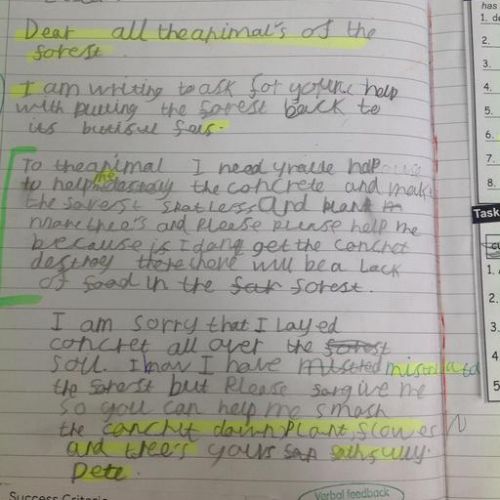 Dear all theanimal's of the
forest
I am writing to ask for youre help
with puting the forest back to
its
To theanimal I need youre help
to help me destroy the concrete and make
the forest spotless and plant
more tree's and Please Please help me
because is I dont get the concret
destroy there will be a Lack
of food in the forest.
I am sorry that I layed
concret all over the forest
soil. I now I have
the forest but Please forgive me
so you can help me smash
the concrit down Plant flowes
and tree's yours
Pete.
has
1. de
2.
3.
4.
5.
6.
7.
8.
Task
1.
2.
3.
4
5
Success Criteria
Verbal feedback